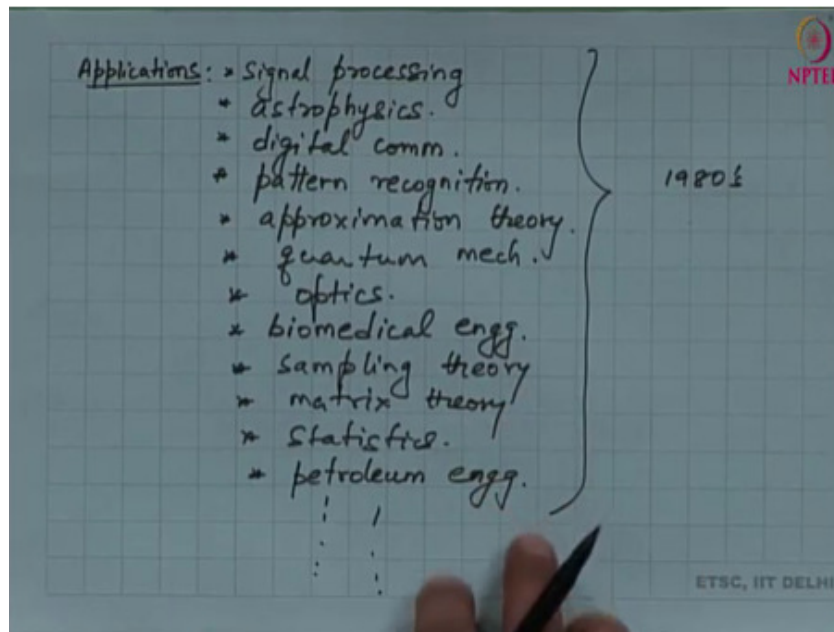 Applications: * Signal processing
* astrophysics.
* digital comm.
* pattern recognition.
* approximation theory.
* quantum mech.
* optics.
* biomedical engg.
* sampling theory
* matrix theory
* statistics.
* petroleum engg.
1980's
NPTEL
ETSC, IIT DELHI